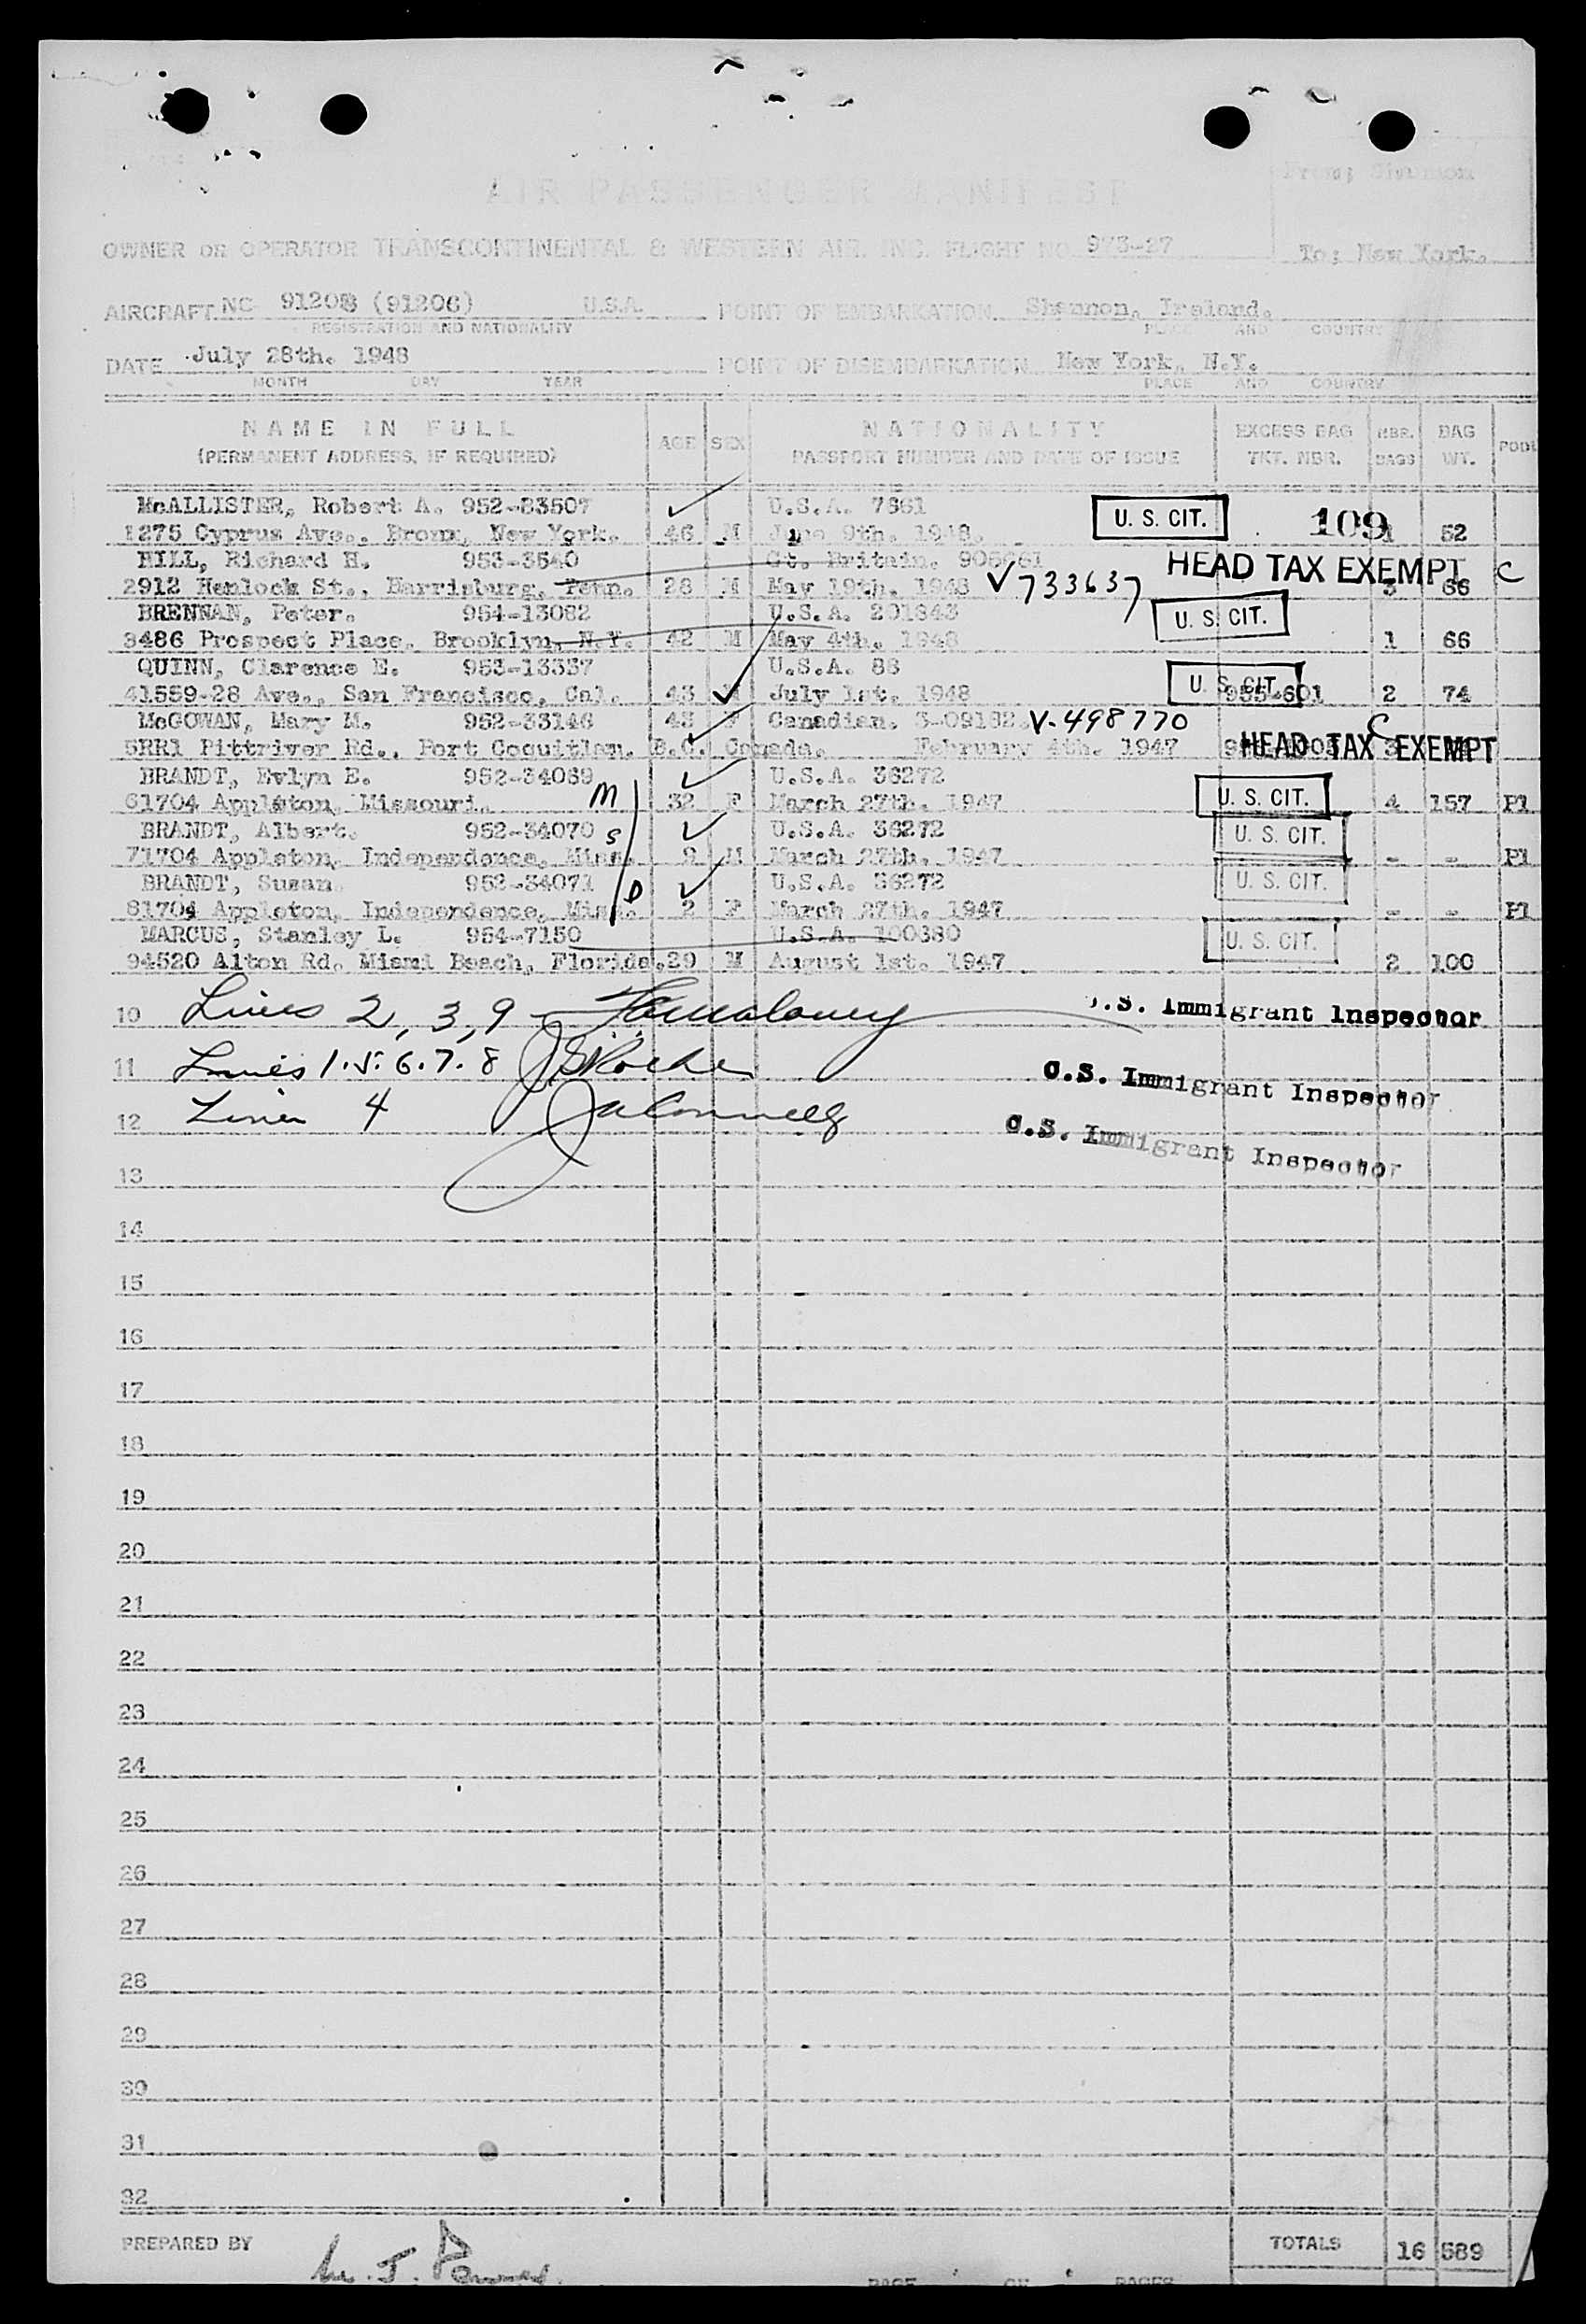 AIR PASSENGER MANIFEST
From; Shannon
OWNER OR OPERATOR TRANSCONTINENTAL & WESTERN AIR, INC. FLIGHT NO. 973-27
To; New York.
AIRCRAFT NC (91206) U.S.A. POINT OF EMBARKATION Shannon, Ireland.
REGISTRATION AND NATIONALITY PLACE AND COUNTRY
DATE July 28th. 1948 POINT OF DISEMBARKATION New York, N.Y.
MONTH DAY YEAR PLACE AND COUNTRY
NAME IN FULL AGE SEX NATIONALITY EXCESS BAG NBR. BAG
(PERMANENT ADDRESS, IF REQUIRED) PASSPORT NUMBER AND DATE OF ISSUE TKT. NBR. BAGS WT.
McALLISTER, Robert A. 952-33507 U.S.A. 7661 U. S. CIT. 109
1275 Cyprus Ave., Bronx, New York. 46 M June 9th. 1948. 1 52
HILL, Richard H. 953-3540 Gt. Britain. 905661 HEAD TAX EXEMPT C
2912 Hemlock St., Harrisburg, Penn. 28 M May 19th. 1948 V733637 3 66
BRENNAN, Peter. 954-13082 U.S.A. 201843 U. S. CIT.
3486 Prospect Place, Brooklyn, N.Y. 42 M May 4th. 1948 1 66
QUINN, Clarence E. 953-13337 U.S.A. 88 U. S. CIT.
41559-28 Ave., San Francisco, Cal. 43 M July 1st. 1948 955-601 2 74
McGOWAN, Mary M. 952-33146 43 F Canadian. V-498770 C
5RR1 Pittriver Rd., Port Coquitlam. B.C. Canada. February 4th. 1947 HEAD TAX EXEMPT
BRANDT, Evlyn E. 952-34069 U.S.A. 36272
61704 Appleton, Missouri. M 32 F March 27th. 1947 U. S. CIT. 4 157 Pl
BRANDT, Albert. 952-34070 S U.S.A. 36272 U. S. CIT.
71704 Appleton, Independence, Miss. 9 M March 27th. 1947 - - Pl
BRANDT, Susan. 952-34071 D U.S.A. 36272 U. S. CIT.
81704 Appleton, Independence, Miss. 2 F March 27th. 1947 - - Pl
MARCUS, Stanley L. 954-7150 U.S.A. 100380 U. S. CIT.
94520 Alton Rd. Miami Beach, Florida. 29 M August 1st. 1947 2 100
10 Lines 2, 3, 9 U.S. Immigrant Inspector
11 Lines 1.5.6.7.8 U.S. Immigrant Inspector
12 Line 4 U.S. Immigrant Inspector
13
14
15
16
17
18
19
20
21
22
23
24
25
26
27
28
29
30
31
32
PREPARED BY TOTALS 16 589
PAGE OF PAGES